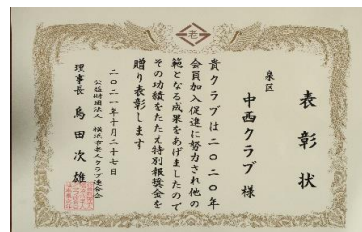 老
表彰状
泉区
中西クラブ様
貴クラブは二〇二〇年
会員加入促進に努力され他の
範となる成果をあげましたので
その功績をたたえ特別報奨金を
贈り表彰します
二〇二一年十月二十七日
公益財団法人 横浜市老人クラブ連合会
理事長 島田次雄